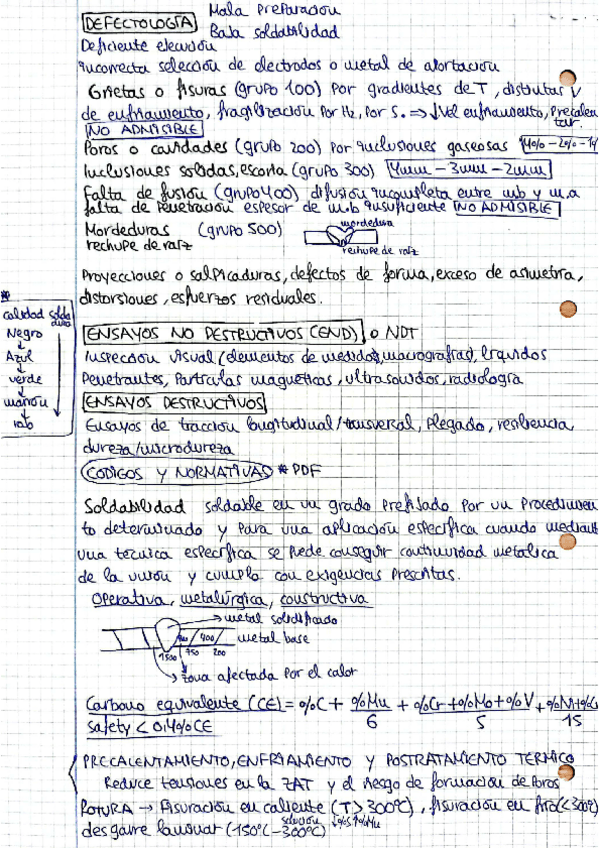 DEFECTOLOGÍA Mala preparación
Baja soldabilidad
Deficiente elección
Incorrecta selección de electrodos o metal de aportación
Grietas o fisuras (grupo 100) por gradientes de T, distintas V
de enfriamiento, fragilización por H2, por S. ⇒ ↓Vel enfriamiento, Precalen
tar.
NO ADMISIBLE
Poros o cavidades (grupo 200) por inclusiones gaseosas 4% - 2% - 1%
Inclusiones solidas, escoria (grupo 300) 4mm - 3mm - 2mm
Falta de fusión (grupo 400) difusión incompleta entre mb y m.a
falta de penetración espesor de m.b insuficiente NO ADMISIBLE
Mordeduras (grupo 500) mordedura
rechupe de raíz rechupe de raíz
Proyecciones o salpicaduras, defectos de forma, exceso de asimetría,
distorsiones, esfuerzos residuales.
*
calidad solda
dura
Negro
↓
Azul
↓
verde
↓
marrón
↓
rojo
ENSAYOS NO DESTRUCTIVOS (END) o NDT
Inspección visual (elementos de medidas, macrografías), líquidos
Penetrantes, Partículas magnéticas, ultrasonidos, radiología
ENSAYOS DESTRUCTIVOS
Ensayos de tracción longitudinal/transversal, Plegado, resiliencia,
dureza/microdureza
CODIGOS Y NORMATIVAS * PDF
Soldabilidad soldable en un grado prefijado por un procedimien
to determinado y para una aplicación específica cuando mediante
una técnica específica se puede conseguir continuidad metálica
de la unión y cumpla con exigencias prescritas.
Operativa, metalúrgica, constructiva
metal solidificado
400 metal base
1500 750 200
zona afectada por el calor
Carbono equivalente (CE) = %C + %Mn/6 + %Cr+%Mo+%V/5 + %Ni+%C/15
Safety < 0,4% CE
PRECALENTAMIENTO, ENFRIAMIENTO Y POSTRATAMIENTO TÉRMICO
Reduce tensiones en la ZAT y el riesgo de formación de Poros
ROTURA → Fisuración en caliente (T>300ºC), fisuración en frío (<300ºC)
desgarre laminar (150ºC-300ºC) solución ↓%S ↑%Mn